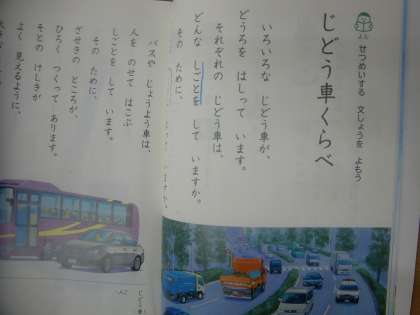 よむ
せつめいする 文しょうを よもう
じどう車くらべ
いろいろな じどう車が、
どうろを はしって います。
それぞれの じどう車は、
どんな しごとを して いますか。
その ために、
バスや じょうよう車は、
人を のせて はこぶ
しごとを して います。
その ために、
ざせきの ところが、
ひろく つくって あります。
そとの けしきが
よく 見えるように、